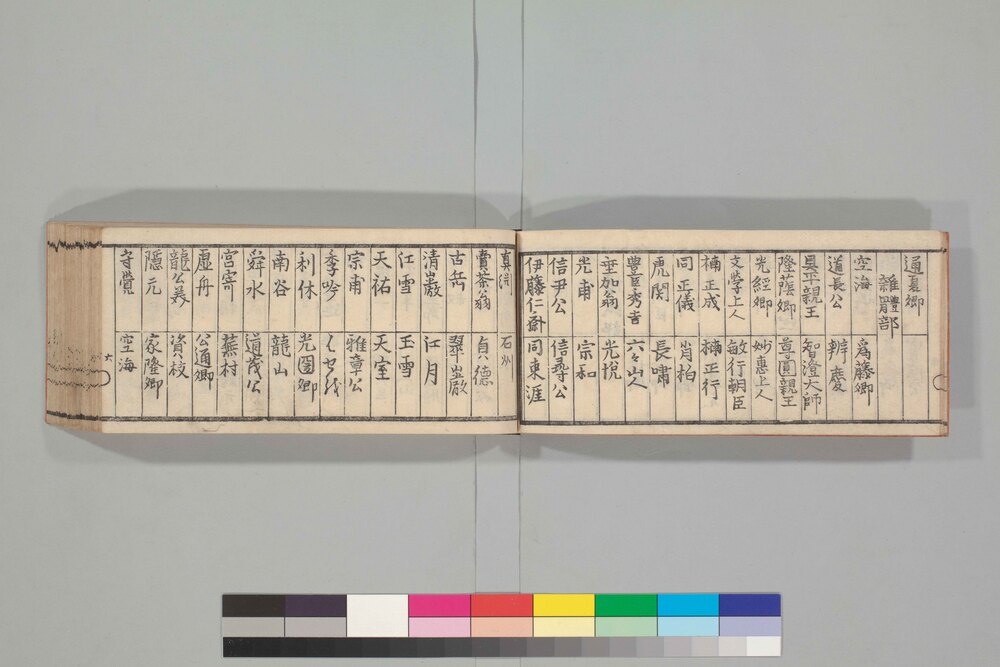 通夏卿
雜體部
空海 爲藤卿
道長公 辨慶
具平親王 智澄大師
隆蔭卿 尊圓親王
光經卿 妙惠上人
文學上人 敏行朝臣
楠正成 楠正行
同正儀 肖柏
虎関 長嘯
豊臣秀吉 六々山人
垂加翁 光悦
光甫 宗和
信尹公 信尋公
伊藤仁斎 同東涯
真淵 石州
賣茶翁 貞德
古岳 翠巌
清巖 江月
江雪 玉雪
天祐 天室
宗甫 雅章公
季吟 はせを
利休 光圀卿
南谷 龍山
舜水 道茂公
宮寄 蕪村
虚舟 公通卿
龍公美 資枝
隱元 家隆卿
守覺 空海
六